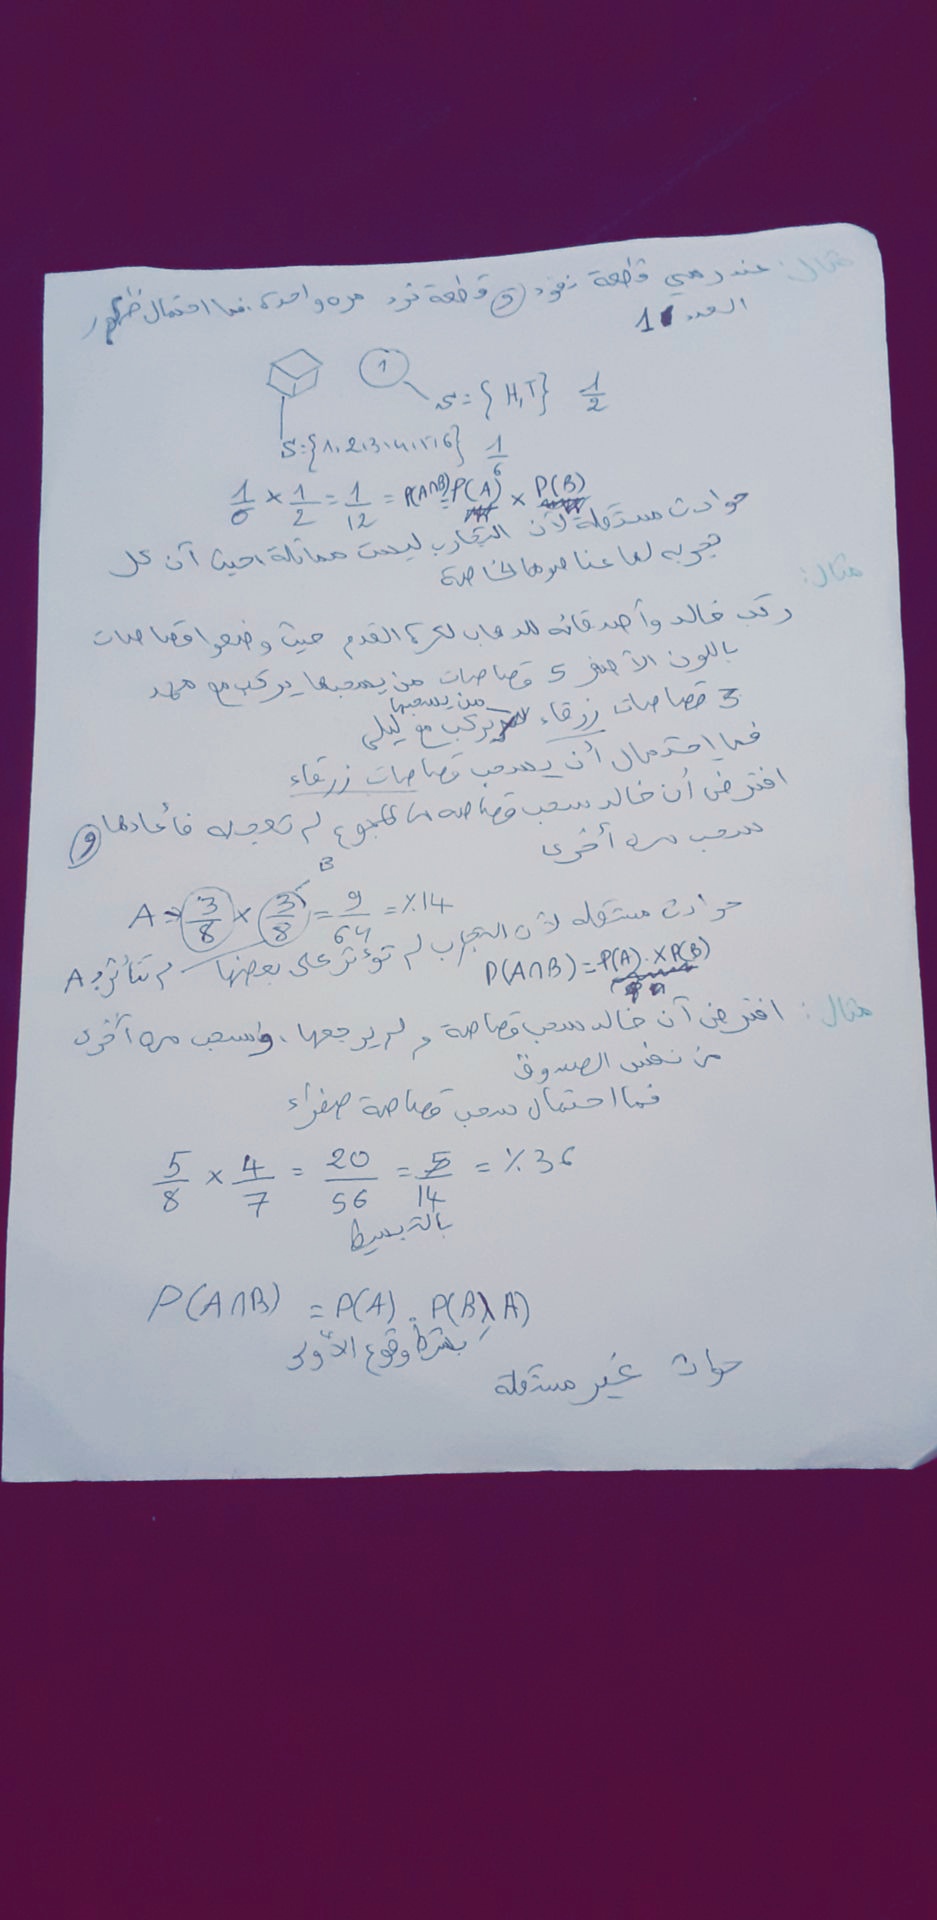 مثال: عند رمي قطعة نقود و قطعة نرد مره واحدة، فما احتمال ظهور
العدد 1
1
S={H,T} 1/2
S={1,2,3,4,5,6} 1/6
1/6 × 1/2 = 1/12 = P(A∩B)=P(A) × P(B)
حوادث مستقلة لأن التجارب ليست مماثلة، حيث أن كل
تجربه لها عناصرها الخاصة
مثال:
ركب خالد وأصدقائه للذهاب لكرة القدم حيث وضعوا قصاصات
باللون الأصفر 5 قصاصات من يسحبها يركب مع
3 قصاصات زرقاء من يسحبها يركب مع ليلى
فما احتمال أن يسحب قصاصات زرقاء
افترض أن خالد سحب قصاصة لم تعجبه فأعادها و
سحب مره أخرى
B
A → 3/8 × 3/8 = 9/64 = ٪14
حوادث مستقله لأن التجارب لم تؤثر على بعضها لم تتأثر بـ A
P(A∩B) = P(A) . × P(B)
مثال: افترض أن خالد سحب قصاصة و لم يرجعها، وسحب مره أخرى
من نفس الصندوق
فما احتمال سحب قصاصة صفراء
5/8 × 4/7 = 20/56 = 5/14 = ٪36
بالتبسيط
P(A∩B) = P(A) . P(B\A)
بشرط وقوع الأولى
حوادث غير مستقلة